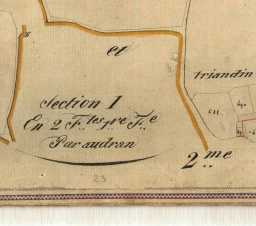 et
triandin
Section I
En 2 F.les p.re F.e
Par audran
2.me
23